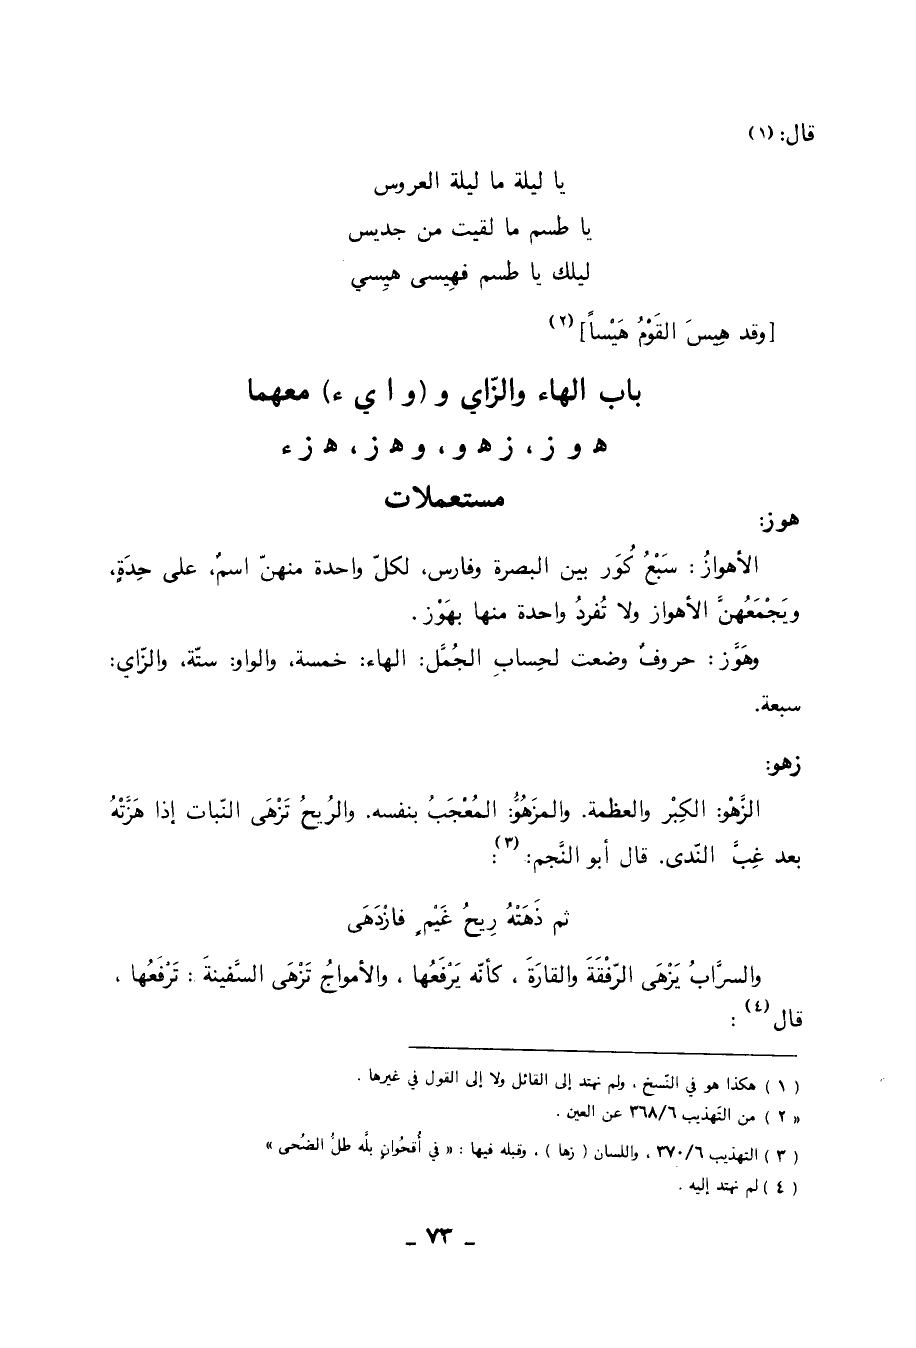 قال: (١)
يا ليلة ما ليلة العروس
يا طسم ما لقيت من جديس
ليلك يا طسم فهِيسى هيِسي
[وقد هِيسَ القَوْمُ هَيْساً] (٢)
باب الهاء والزّاي و (و ا ي ء) معهما
ه و ز، ز ه و، و ه ز، ه ز ء
مستعملات
هوز:
الأهوازُ : سَبْعُ كُوَر بين البصرة وفارس، لكلّ واحدة منهنّ اسمٌ، على حِدَةٍ،
ويَجْمَعُهنَّ الأهواز ولا تُفردُ واحدة منها بهَوْز .
وهَوَّز : حروفٌ وضعت لحِسابِ الجُمَّل: الهاء: خمسة، والواو: ستّة، والزّاي:
سبعة.
زهو:
الزَّهْو: الكِبْر والعظمة. والمزَهُوُّ: المُعْجَبُ بنفسه. والرُيحُ تَزْهَى النّبات إذا هَزَّتْهُ
بعد غِبَّ النّدى. قال أبو النَّجم: (٣):
ثم ذَهَتْهُ رِيحُ غَيْمٍ فازْدَهَى
والسرَّابُ يَزْهَى الرّفْقَةَ والقارَةَ ، كأنّه يَرْفَعُها ، والأمواجُ تَزْهَى السَّفينةَ : تَرْفَعُها ،
قال (٤) :
( ١ ) هكذا هو في النّسخ ، ولم نهتد إلى القائل ولا إلى القول في غيرها .
« ٢ ) من التّهذيب ٣٦٨/٦ عن العين .
( ٣ ) التهذيب ٣٧٠/٦ ، واللسان ( زها ) ، وقبله فيها : « في أُقحُوانٍ بلَّه طلُّ الضُحى »
( ٤ ) لم نهتد إليه .
ـ ٧٣ ـ